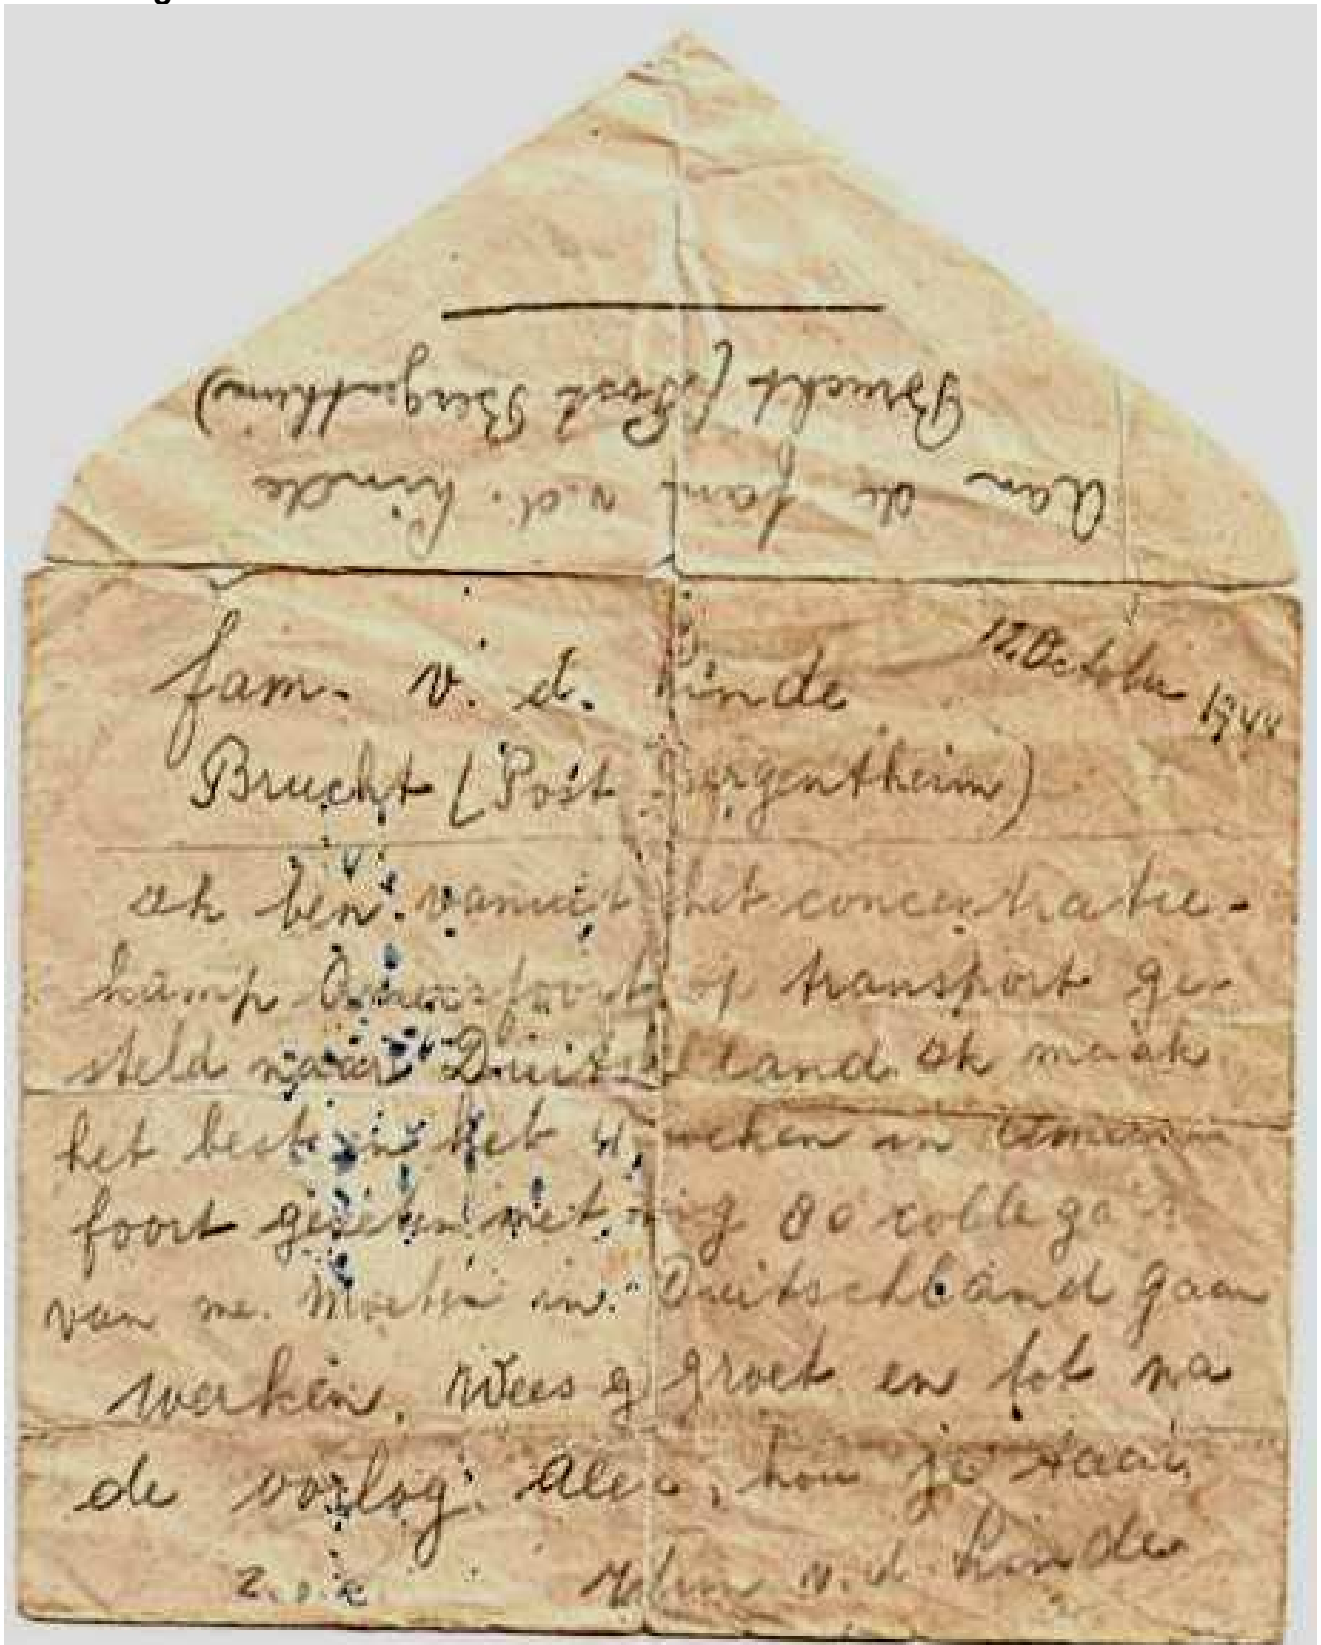 Aan de fam v.d. Linde
Brucht (Post Bergentheim)
12 October 1944
fam. v. d. Linde
Brucht (Post Bergentheim)
Ik ben vanuit het concentratie-
kamp Amersfoort op transport ge-
steld naar Duitschland Ik maak
het best en heb 4 weken in Amers
foort gezeten met nog 80 collega's
van me. Moeten in Duitschland gaan
werken. Wees gegroet en tot na
de oorlog. Allen, hou je taai,
z.o.z. v.d. Linde